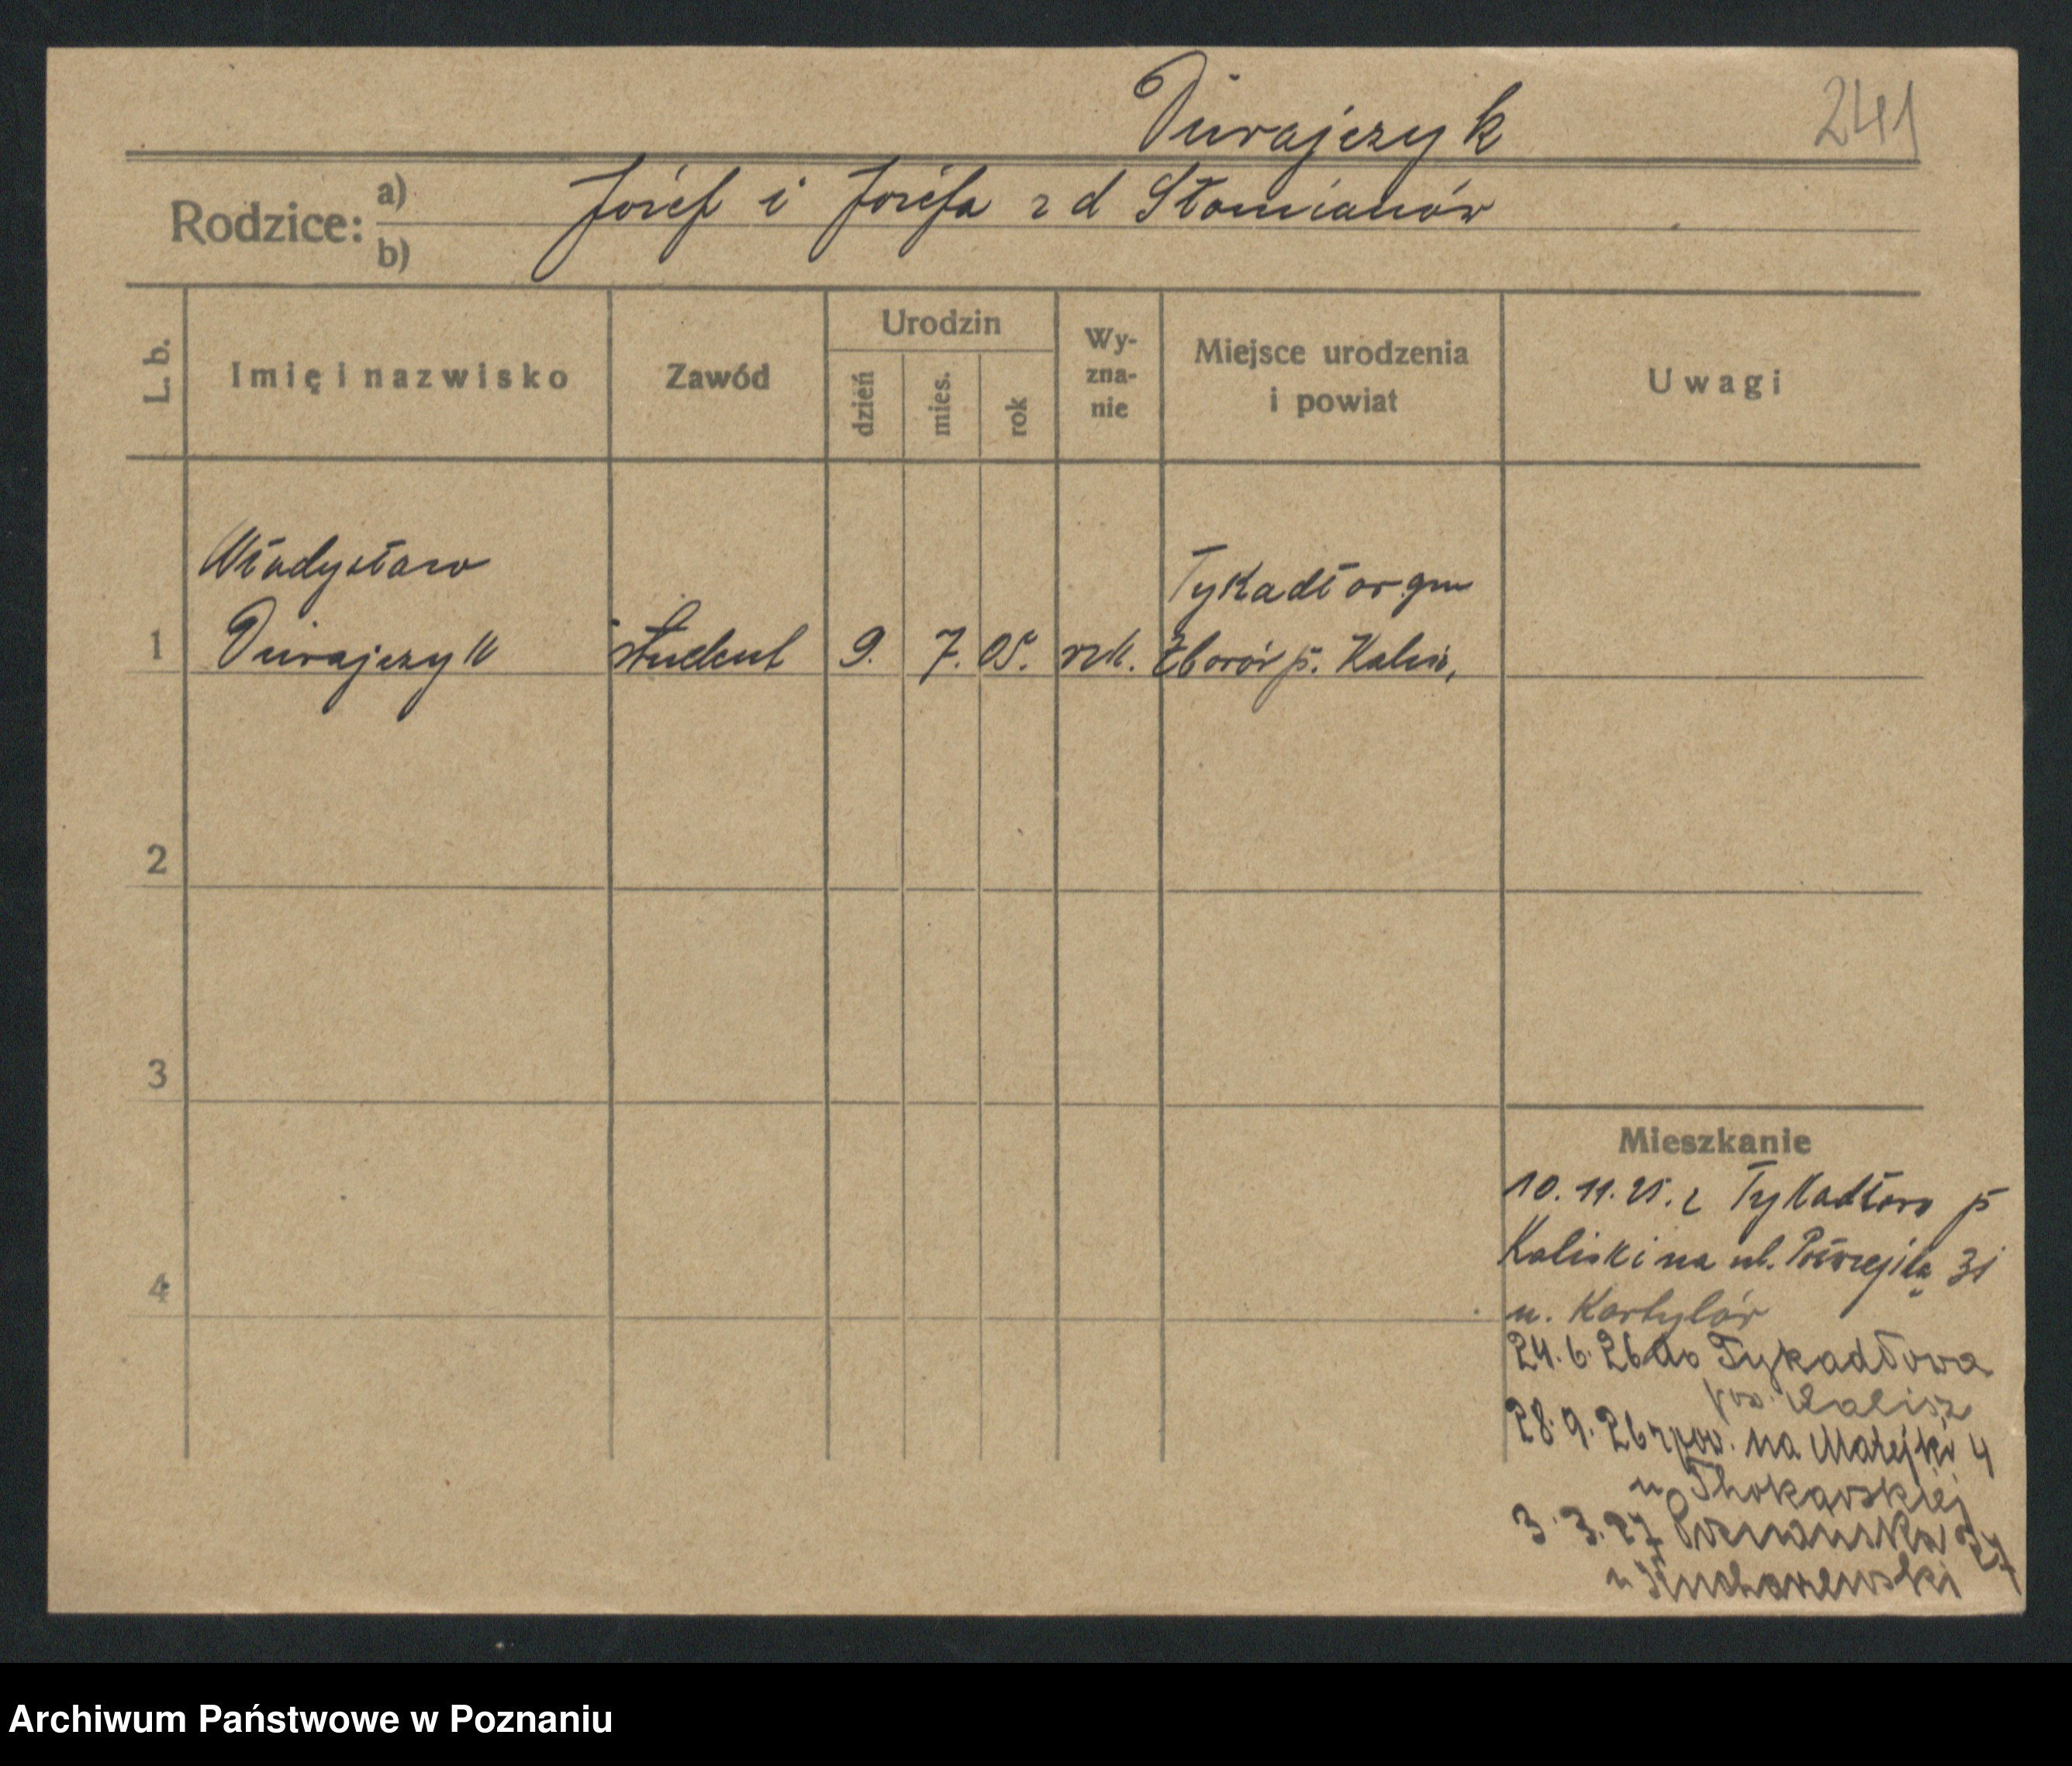 Durajczyk
241
Rodzice:
a) Józef i Józefa z d Słomianów
b)
L. b.
Imię i nazwisko
Zawód
Urodzin
dzień
mies.
rok
Wy-
zna-
nie
Miejsce urodzenia
i powiat
Uwagi
Władysław
Tykadłów gm
1 Durajczyk student 9. 7. 05. rzk. Zborów p. Kalisz,
2
3
4
Mieszkanie
10. 11. 25. z Tykadłowa p
Kaliski na ul. 31
u.
24. 6. 26 do Tykadłowa
pow. Kalisz
28. 9. 26 zpow. na Matejki 4
u
3. 3. 27 Poznańska 27
u Kucharzewski
Archiwum Państwowe w Poznaniu